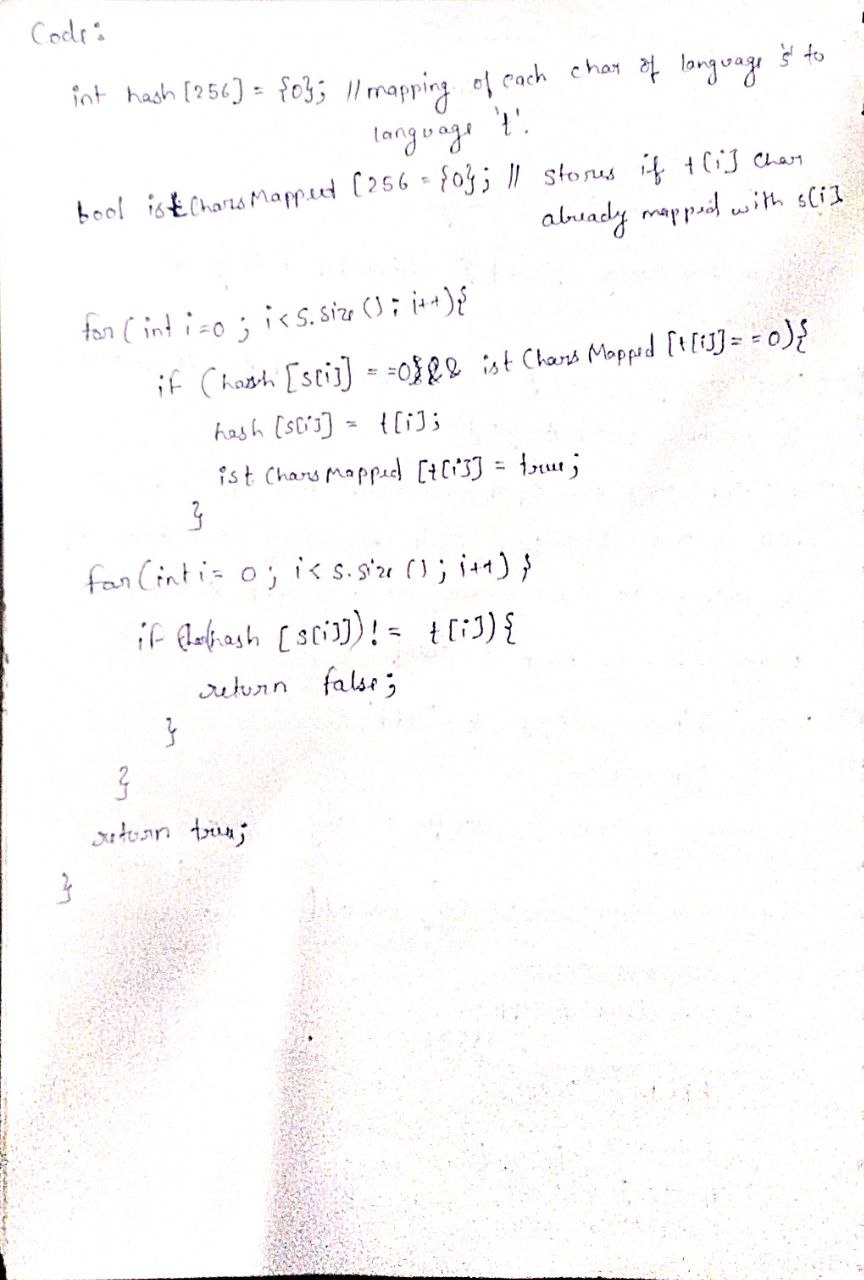 Code:
int hash [256] = {0}; // mapping of each char of language 's' to
language 't'.
bool istCharsMapped [256 = {0}; // stores if t[i] char
already mapped with s[i]
for (int i=0 ; i<s.size (); i++){
if (hash [s[i]] ==0 && ist Chars Mapped [t[i]]==0){
hash [s[i]] = t[i];
ist Chars Mapped [t[i]] = true;
}
for (int i= 0; i< s.size (); i++) {
if (hash [s[i]]) != t[i]) {
return false;
}
}
return true;
}